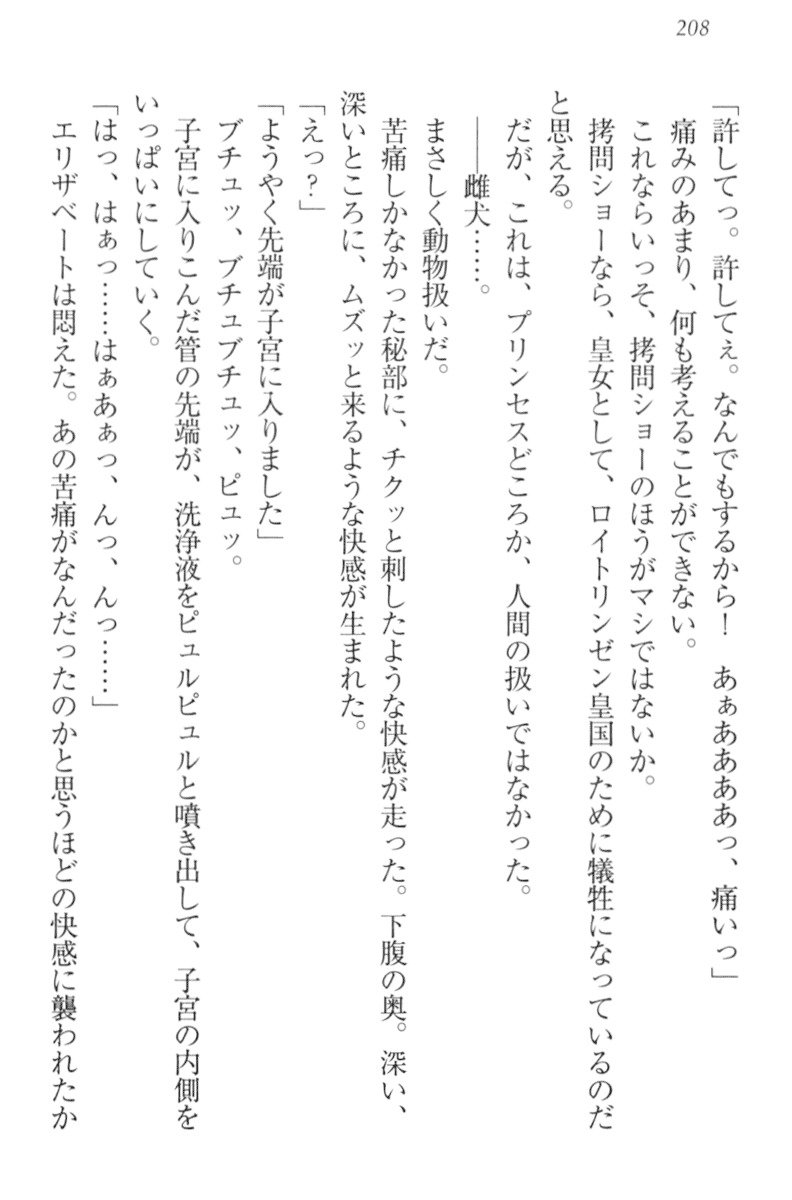 208
「許してっ。許してぇ。なんでもするから！　あぁああああっ、痛いっ」
痛みのあまり、何も考えることができない。
これならいっそ、拷問ショーのほうがマシではないか。
拷問ショーなら、皇女として、ロイトリンゼン皇国のために犠牲になっているのだ
と思える。
だが、これは、プリンセスどころか、人間の扱いではなかった。
――雌犬……。
まさしく動物扱いだ。
苦痛しかなかった秘部に、チクッと刺したような快感が走った。下腹の奥。深い、
深いところに、ムズッと来るような快感が生まれた。
「えっ？」
「ようやく先端が子宮に入りました」
ブチュッ、ブチュブチュッ、ピュッ。
子宮に入りこんだ管の先端が、洗浄液をピュルピュルと噴き出して、子宮の内側を
いっぱいにしていく。
「はっ、はぁっ……はぁあぁっ、んっ、んっ……」
エリザベートは悶えた。あの苦痛がなんだったのかと思うほどの快感に襲われたか